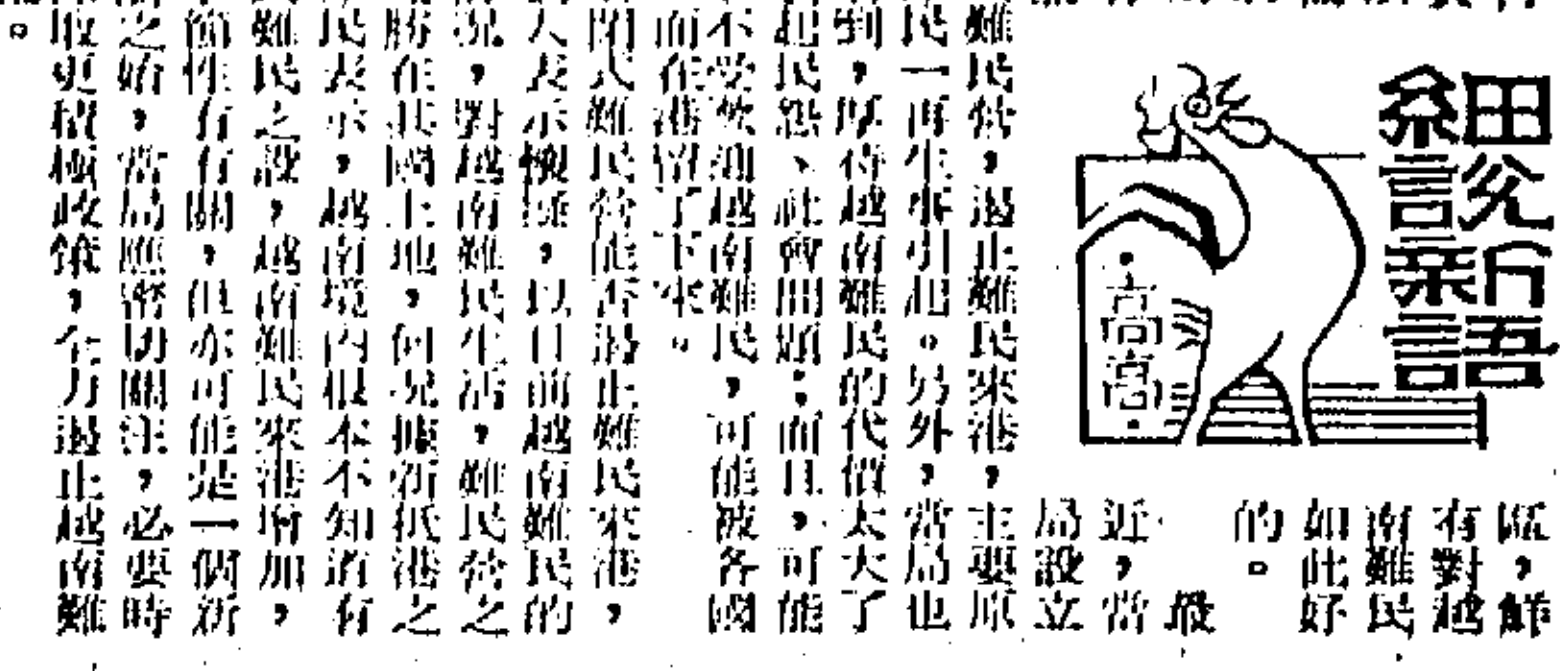 細說新語
區，鮮
有對越
南難民
如此好
的。
最
近，當
局設立
難民營，遏止難民來港，主要原
民一再生事引起。另外，當局也
到，厚待越南難民的代價，太大了
起民怨、社會問題；而且，可能
不受歡迎越南難民，可能被各國
而在港留了下來。
閉式難民營能否遏止難民來港，
人表示懷疑，以目前越南難民的
況，對越南難民生活，難民營之
勝在其國土地，何況據新抵港之
民表示，越南境內根本不知道有
難民之設，越南難民來港增加，
節性有有關，但亦可能是一個新
之始，當局應密切關注，必要時
取更積極政策，全力遏止越南難
。